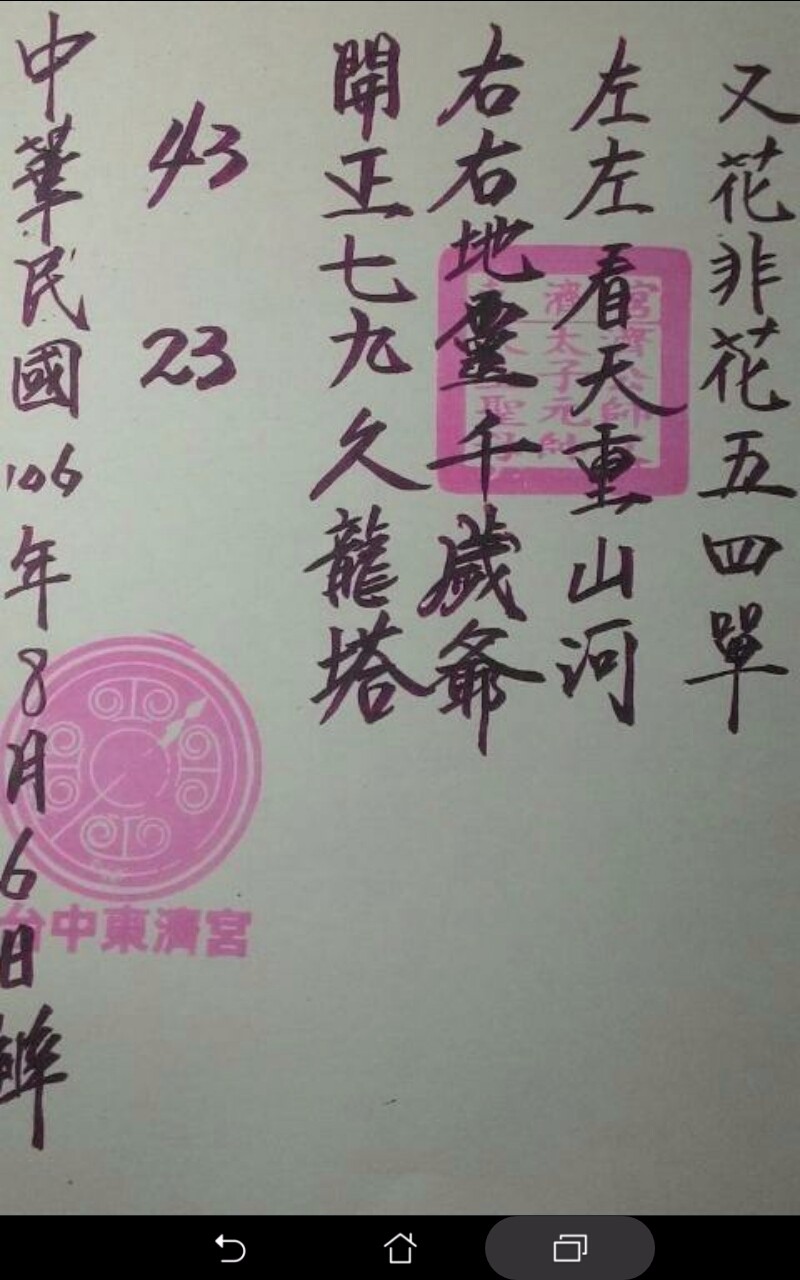 又花非花五四單
左左看天重山河
右右地靈千歲爺
開正七九久龍塔
43 23
中華民國106年8月6日
宮濟 師
濟太子元帥
聖
台中東濟宮